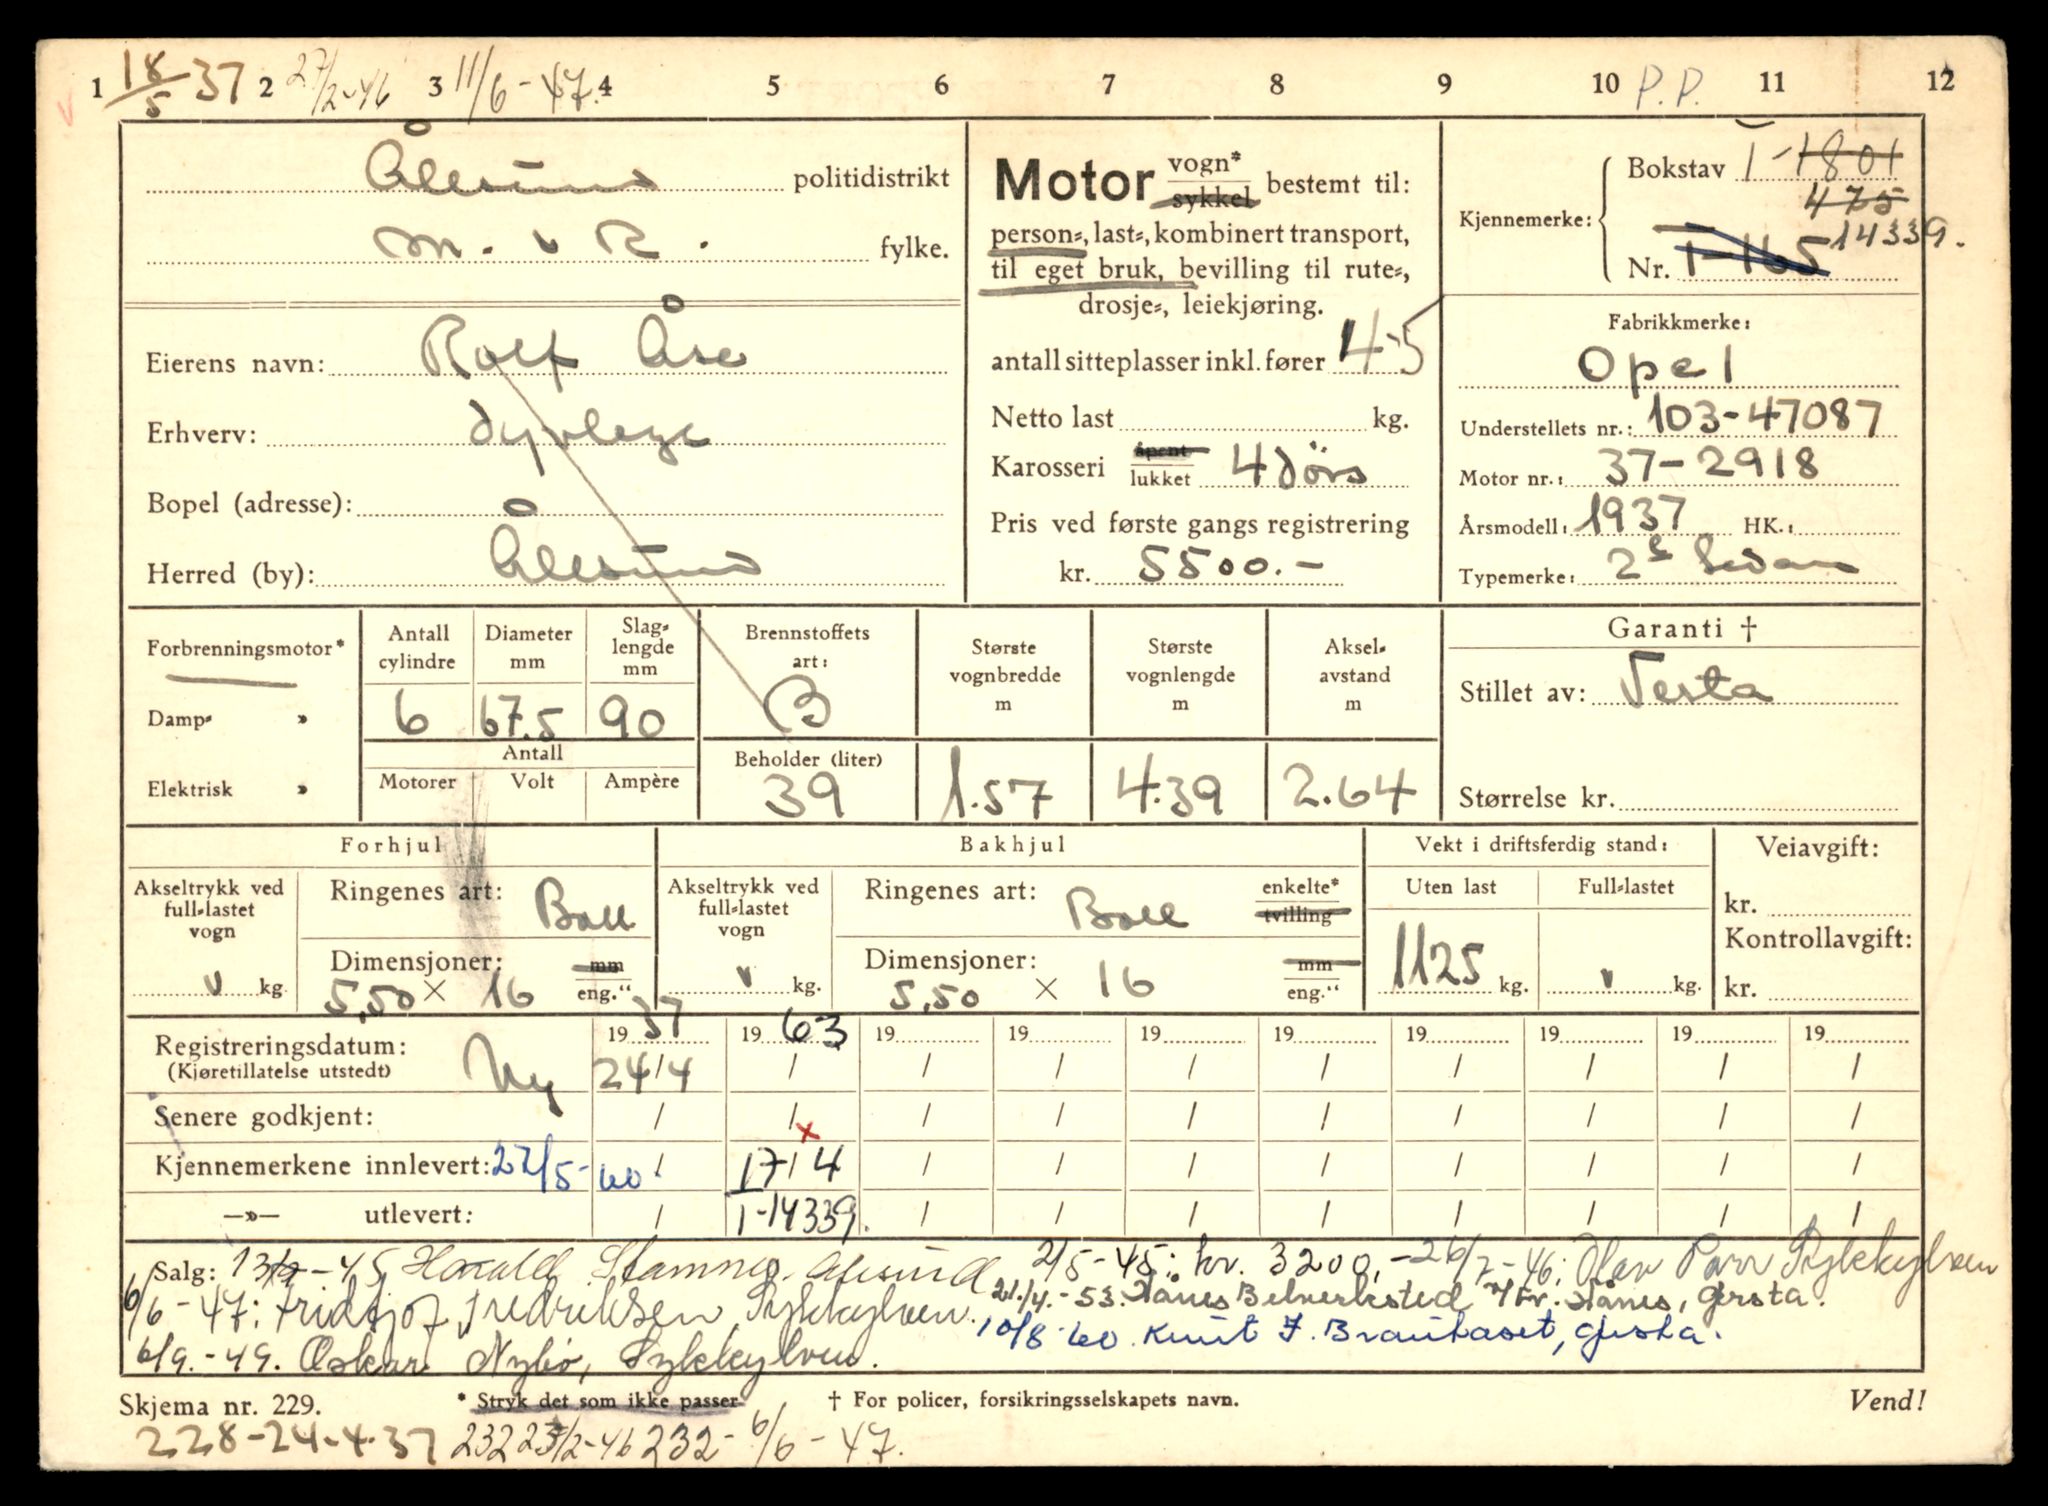 1 18/5-37 2 27/2-46 3 11/6-47. 4 5 6 7 8 9 10 P.P. 11 12
Ålesund politidistrikt
M. v R. fylke.
Eierens navn: Rolf Åse
Erhverv: dyrlege
Bopel (adresse):
Herred (by): Ålesund
Motor vogn* sykkel bestemt til:
person-, last-, kombinert transport,
til eget bruk, bevilling til rute-,
drosje-, leiekjøring.
antall sitteplasser inkl. fører 4-5
Netto last kg.
Karosseri åpent lukket 4 dørs
Pris ved første gangs registrering
kr. 5500.-
Kjennemerke: Bokstav T-1801
475
14339.
Nr. T-165
Fabrikkmerke:
Opel
Understellets nr.: 103-47087
Motor nr.: 37-2918
Årsmodell: 1937 HK.:
Typemerke: 2 L Sedan
Forbrenningsmotor*
Damp- »
Elektrisk »
Antall cylindre 6
Diameter mm 67.5
Slag-lengde mm 90
Antall
Motorer Volt Ampère
Brennstoffets art: B
Beholder (liter) 39
Største vognbredde m 1.57
Største vognlengde m 4.39
Aksel-avstand m 2.64
Garanti †
Stillet av: Vesta
Størrelse kr.
Forhjul
Akseltrykk ved full-lastet vogn v kg
Ringenes art: Ball
Dimensjoner: 5,50 × 16 mm eng."
Bakhjul
Akseltrykk ved full-lastet vogn v kg.
Ringenes art: Ball enkelte* tvilling
Dimensjoner: 5,50 × 16 mm eng."
Vekt i driftsferdig stand:
Uten last 1125 kg.
Full-lastet v kg.
Veiavgift:
kr.
Kontrollavgift:
kr.
19 37 19 63 19 19 19 19 19 19 19 19
Registreringsdatum: Ny 24/4 / / / / / / / / /
(Kjøretillatelse utstedt)
Senere godkjent: / / / / / / / / / /
x
Kjennemerkene innlevert: 27/5-60. / 17/4 / / / / / / / /
—»— utlevert: / T-14339. / / / / / / / /
Salg: 13/2-45 Harald Stamnes Ålesund 2/5-45: kr. 3200,- 26/2-46: Olav Parr Sykkylven
6/6-47: Fridtjof Fredriksen, Sykkylven. 21/4.-53. Hånes Bilverksted v/ Hånes, Ørsta.
10/8-60. Knut J. Brauthaset, Ørsta.
6/9.-49. Oskar Nybø, Sykkylven.
Skjema nr. 229. * Stryk det som ikke passer † For policer, forsikringsselskapets navn. Vend!
228-24-4-37 232 25/2-46 232-6/6-47.